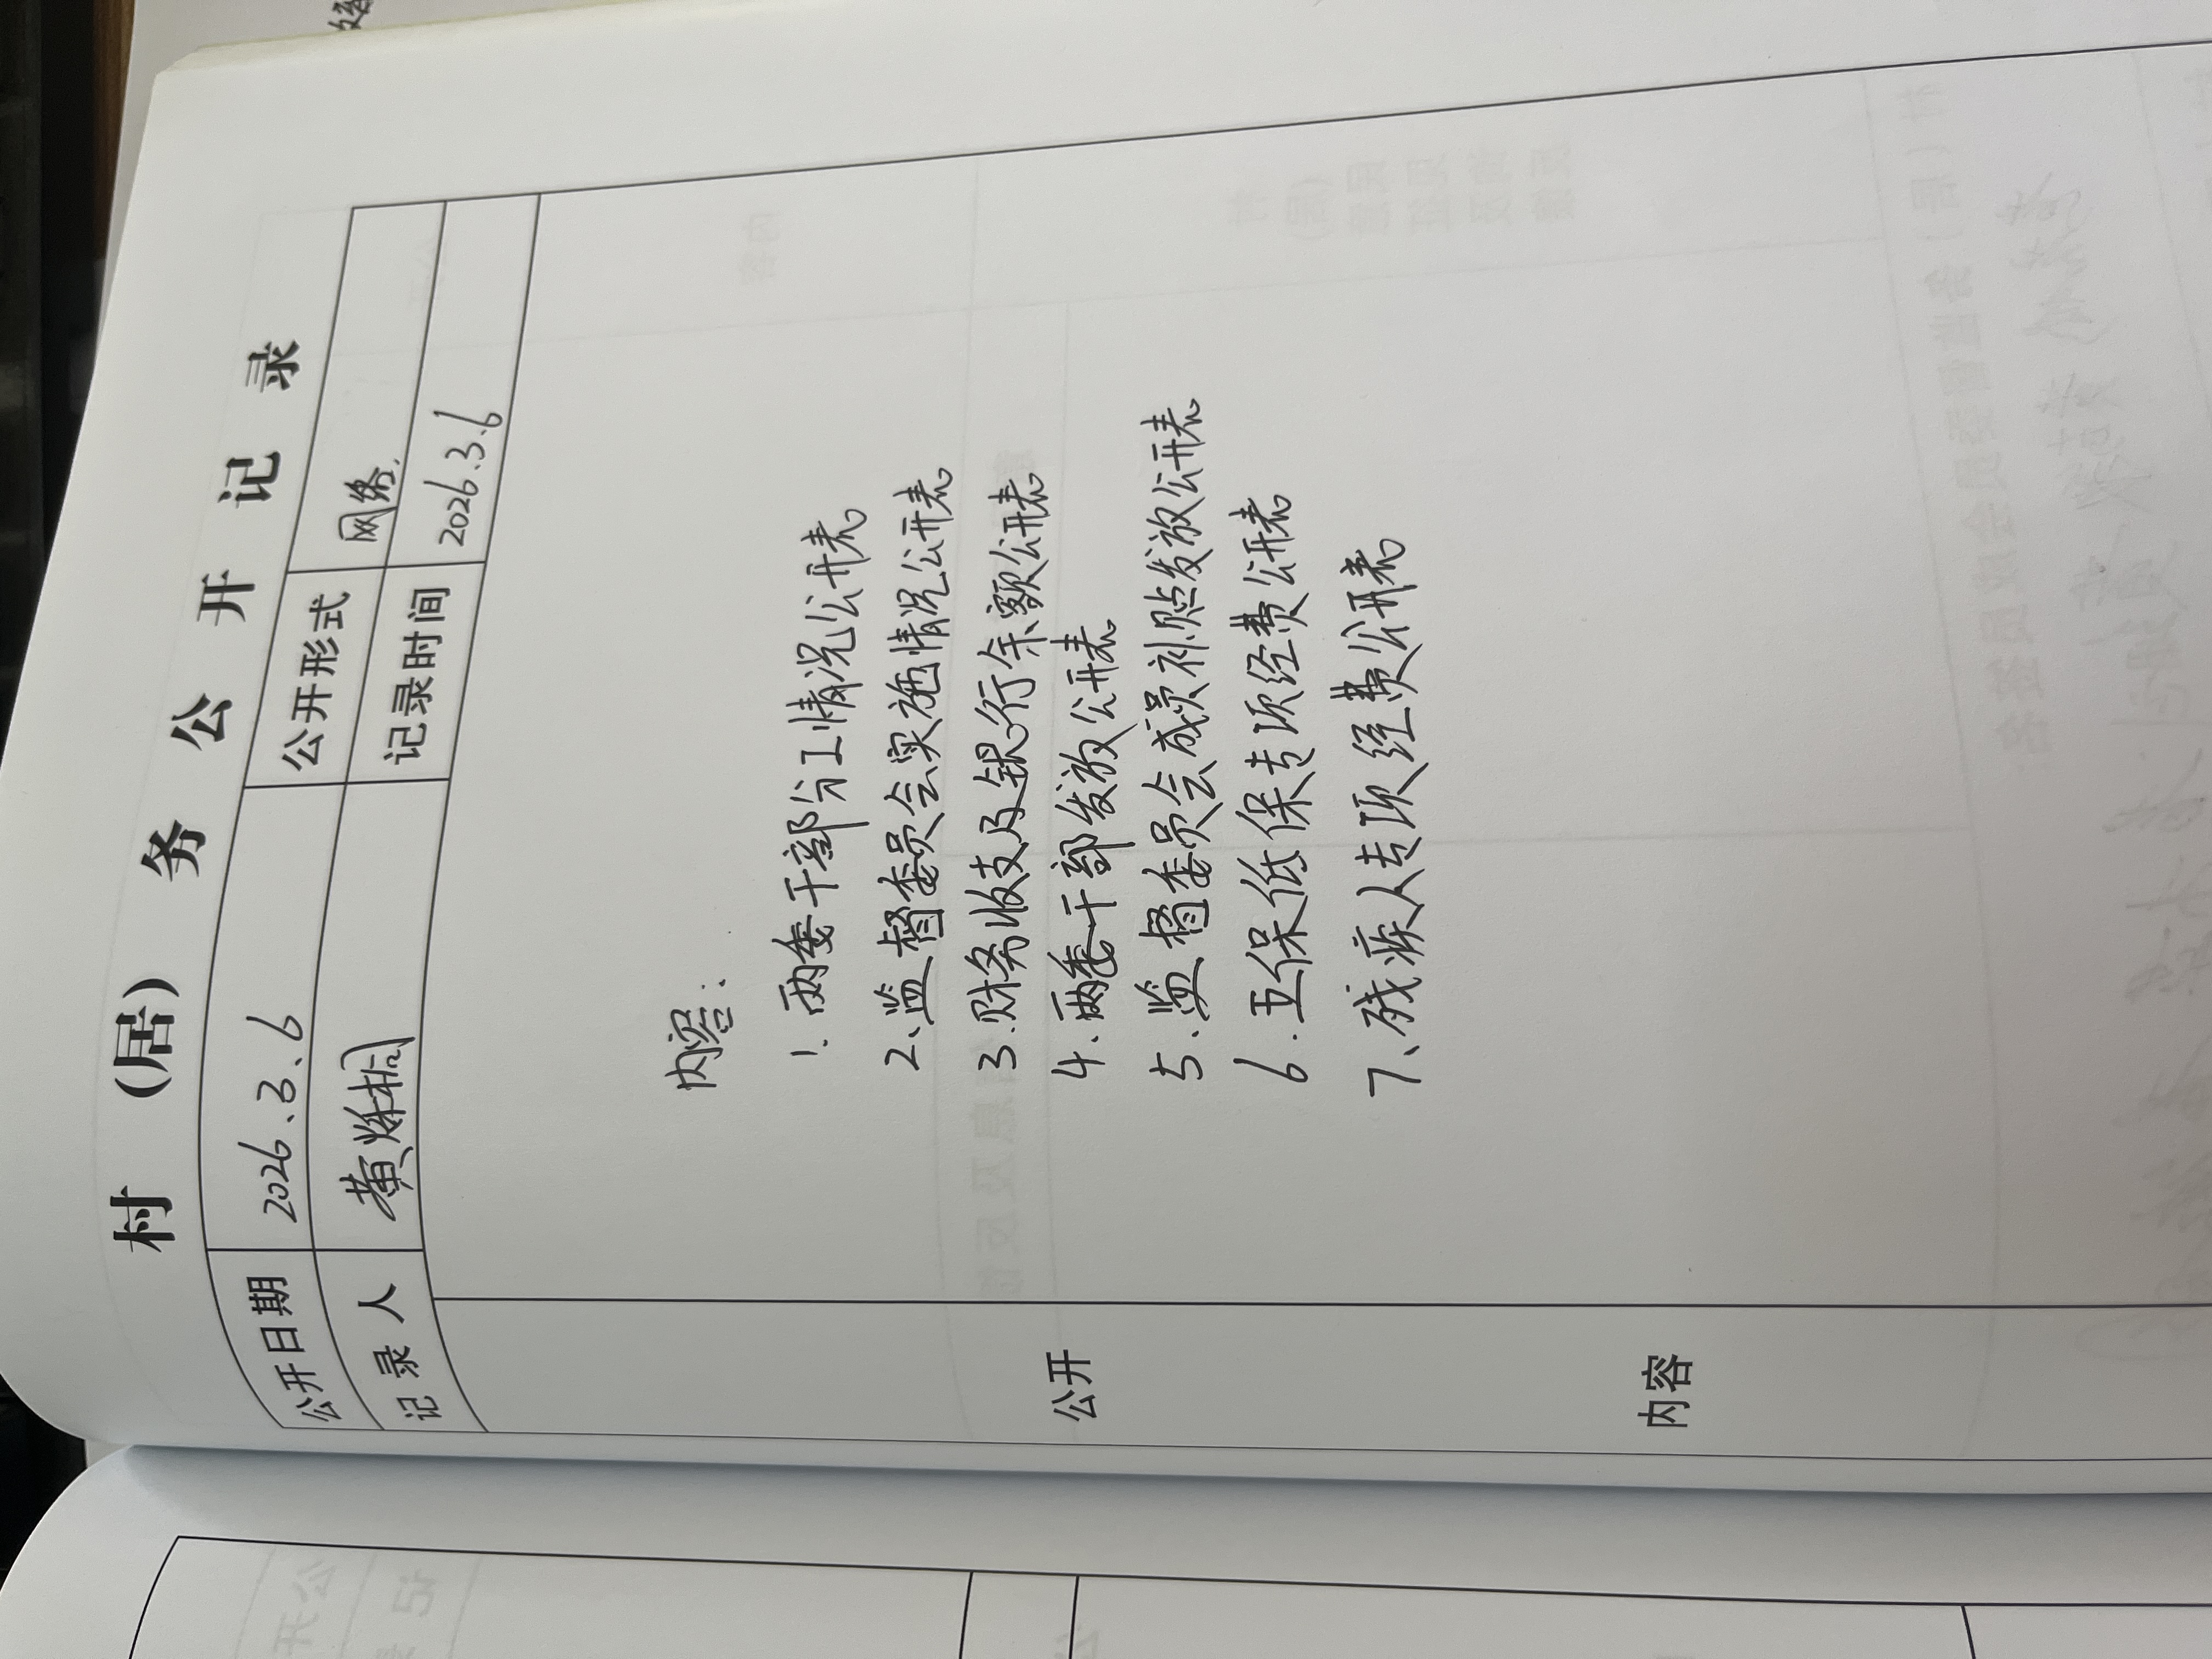 村 (居) 务 公 开 记 录
公开日期 2026.3.6 公开形式 网络.
记 录 人 黄 记录时间 2026.3.6
公开
内容
内容：
1. 两委干部分工情况公开表
2、监督委员会实施情况公开表
3.财务收支及银行余额公开表
4.两委干部发放公开表
5.监督委员会成员补贴发放公开表
6.五保低保专项经费公开表
7、残疾人专项经费公开表